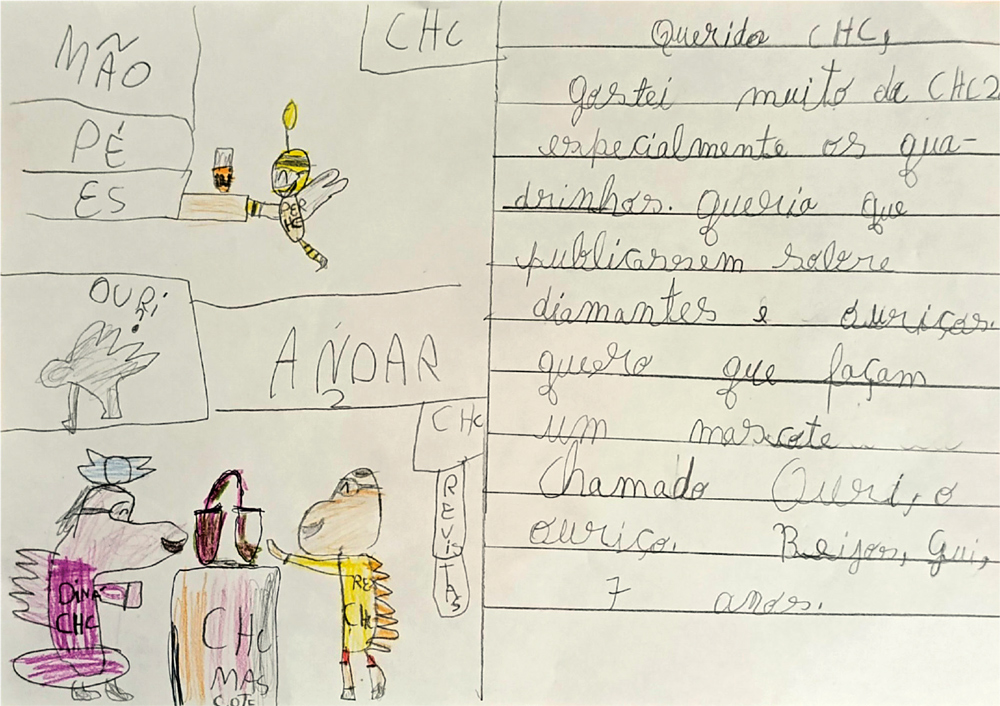 MÃO
PÉ
ES
CHC
PER
HC
OURi
ANDAR
2
CHC
REViTAS
DINÁ
CHC
CHC
MAS
COTE
REX
CHC
Querida CHC,
gostei muito da CHC2
especialmente os qua-
drinhos. queria que
publicassem sobre
diamantes e ouriços.
quero que façam
um mascote
Chamado Ouri, o
ouriço. Beijos, Gui,
7 anos.